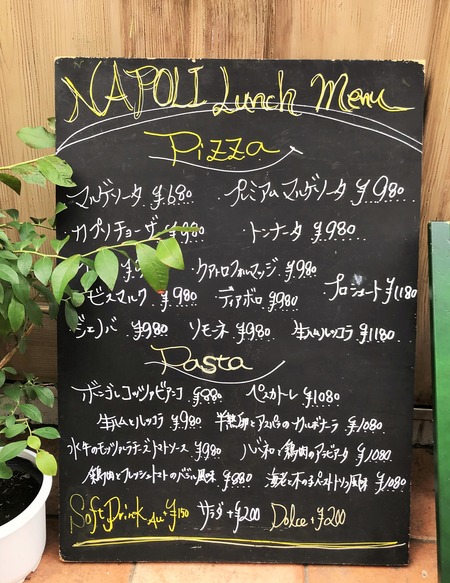 NAPOLI Lunch Menu
Pizza
・マルゲリータ ¥680 ・プレミアムマルゲリータ ¥980
・カプリチョーザ ¥980 ・トンナータ ¥980
¥980 ・クアトロフォルマッジ ¥980
ビスマルク ¥980 ・ディアボロ ¥980 プロシュート ¥1180
ジェノバ ¥980 リモーネ ¥980 生ハムルッコラ ¥1180
Pasta
ボンゴレコッツァビアンコ ¥880 ペスカトーレ ¥1080
生ハムとルッコラ ¥980 半熟卵とアスパラのカルボナーラ ¥1080
水牛のモッツァレラチーズトマトソース ¥980 鶏肉のアラビアータ ¥1080
鶏肉とフレッシュトマトのバジル風味 ¥880 海老と木の子ペペロンチーノ風味 ¥1080
Soft Drink All+¥150 サラダ+¥200 Dolce+¥200